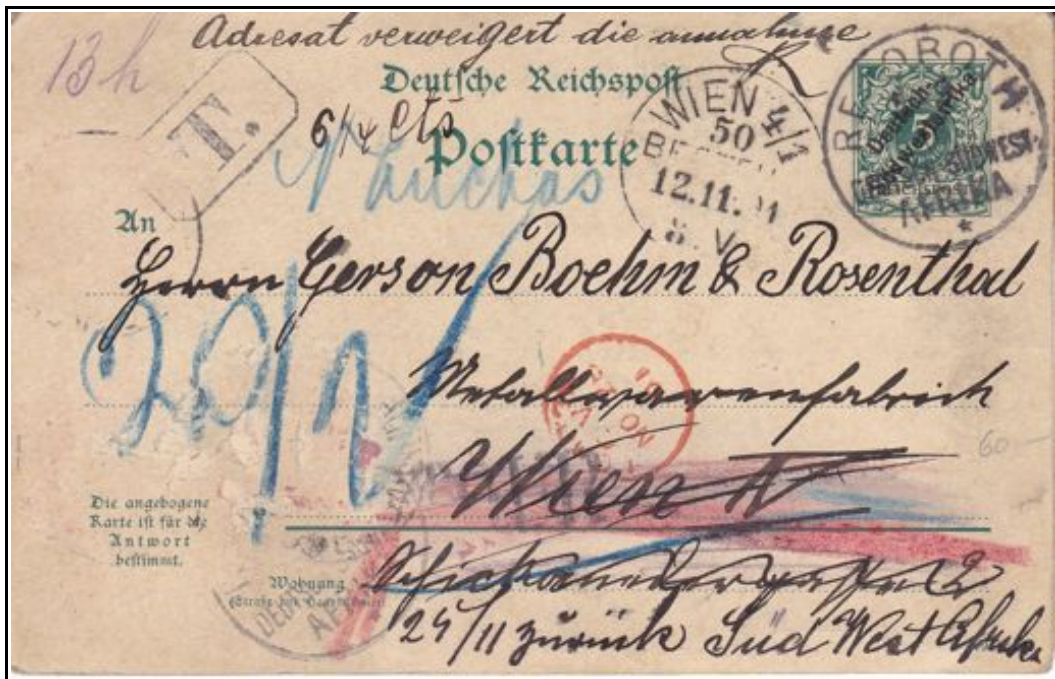 Adresat verweigert die annahme
13 h
Deutsche Reichspost
6 1/4 cts
T.
Postkarte
Nauchas
WIEN 4/1
50
12.11.
8. V
REHOBOTH
SÜDWEST-
AFRIKA
Deutsch-
Südwestafrika
5
An
Herrn Gerson Boehm & Rosenthal
20/2
Metallwarenfabrik
60-
Wien IV
Die angebogene
Karte ist für die
Antwort
bestimmt.
Wohnung
Schickanedergasse 2
24/11 zurück Süd West Afrika